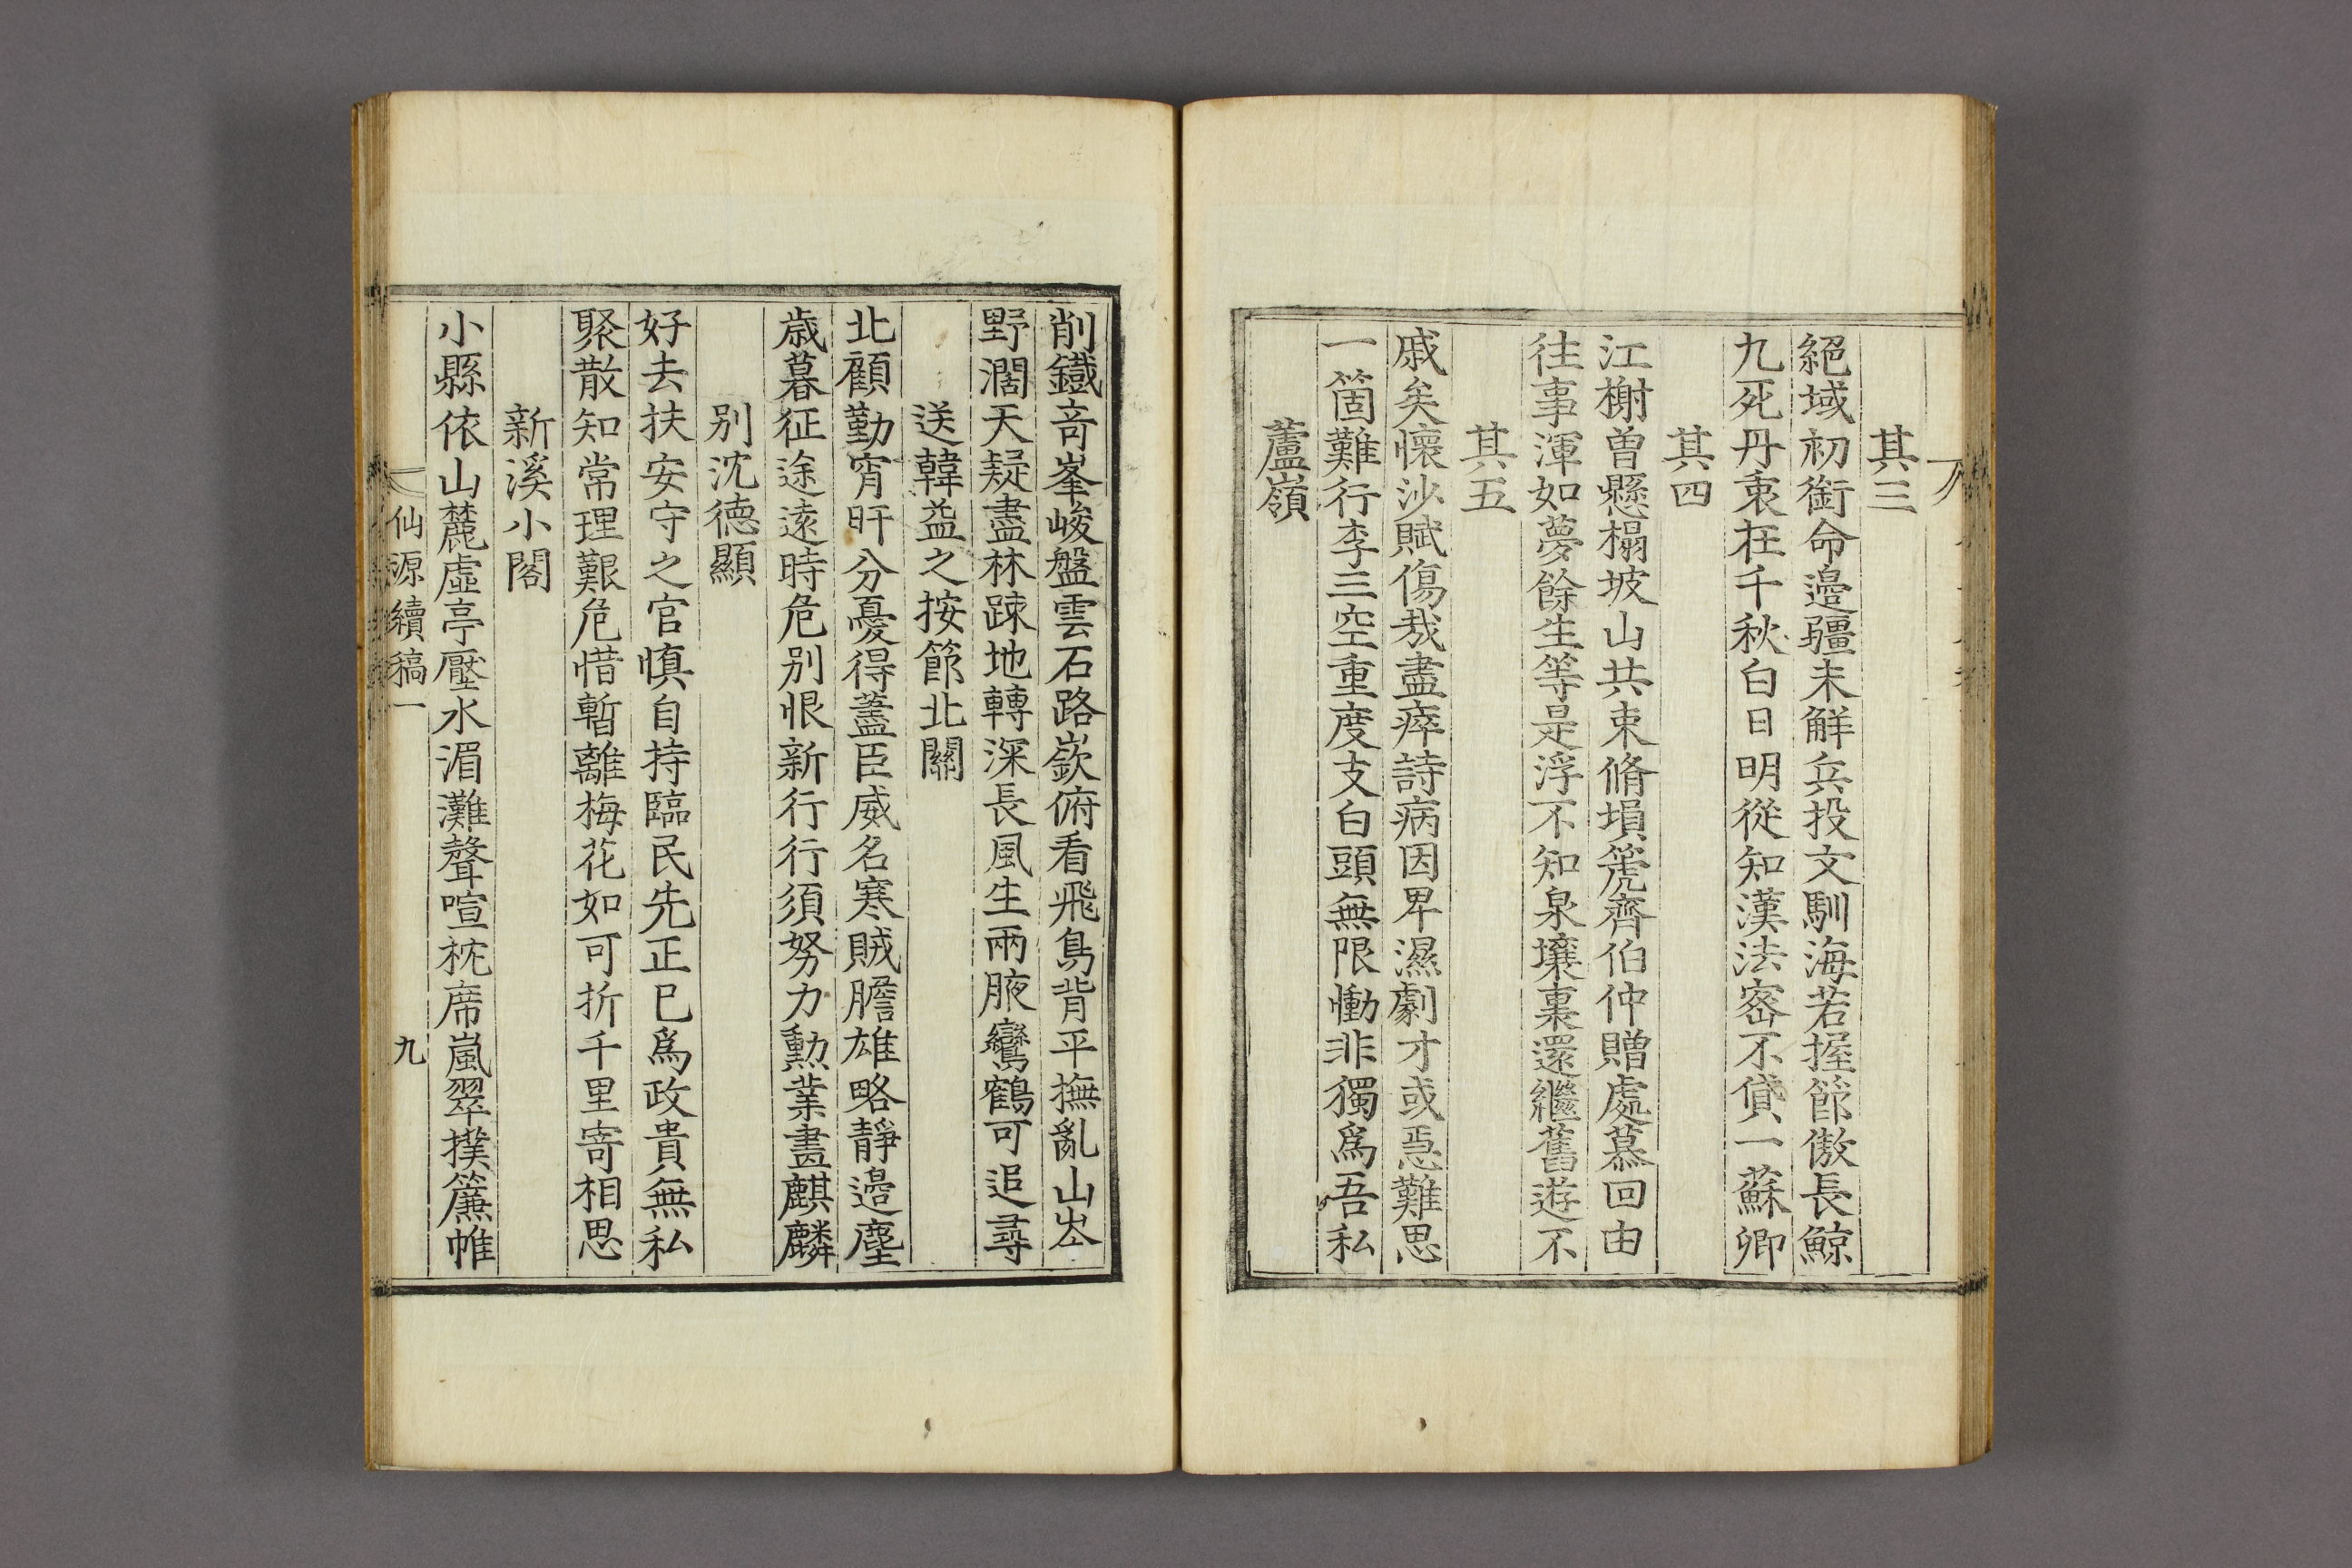 其三
絕域初銜命邉疆未解兵投文馴海若握節傲長鯨
九死丹衷在千秋白日明從知漢法宻不貸一蘇卿
其四
江榭曽懸榻坡山共束脩塤箎齊伯仲贈處慕回由
往事渾如夢餘生等是浮不知泉壤裏還繼舊遊不
其五
戚矣懷沙賦傷哉盡瘁詩病因卑濕劇才或惎難思
一箇難行李三空重度支白頭無限慟非獨爲吾私
蘆嶺
削鐡竒峯峻盤雲石路嶔俯看飛鳥背平撫亂山岑
野濶天疑盡林踈地轉深長風生兩腋鸞鶴可追尋
送韓益之按節北關
北顧勤宵旰分憂得藎臣威名寒賊膽雄略靜邉塵
歳暮征途逺時危别恨新行行須努力勲業畫麒麟
别沈德顯
好去扶安守之官愼自持臨民先正已爲政貴無私
聚散知常理艱危惜暫離梅花如可折千里寄相思
新溪小閣
小縣依山麓虛亭壓水湄灘聲喧枕席嵐翠撲簾帷
仙源續稿一
九